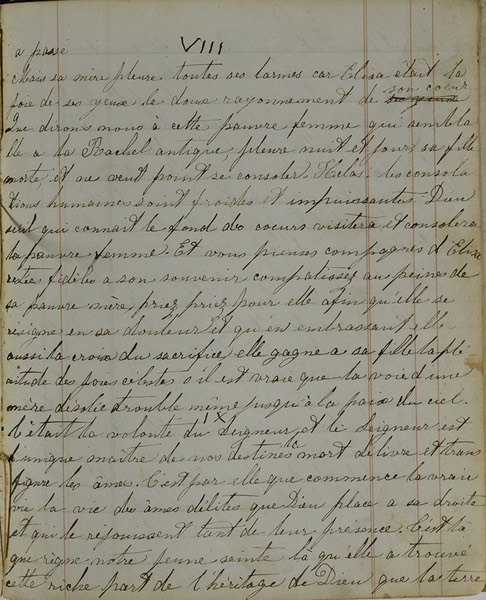 VIII
a passé
Mais sa mère pleure toutes ses larmes car Elisa était la
joie de ses yeux le doux rayonnement de son coeur
Que dirons nous à cette pauvre femme qui sembla
ble a la Rachel antique, pleure nuit et jours sa fille
morte et ne veut point se consoler. Hélas les consola
tions humaines sont froides et impuissantes. Dieu
seul qui connait le fond des coeurs visitera et consolera
la pauvre femme. Et vous pieuses compagnes d'Elise
restées fidèles a son souvenir compatissez au peines de
sa pauvre mère, priez, priez pour elle afin qu'elle se
résigne en sa douleur et qu'en embrassant elle
aussi la croix du sacrifice elle gagne a sa fille la plé
nitude des joies célestes s'il est vraie que la voie d'une
mère désolée trouble même jusqu'à la paix du ciel.
IX
C'était la volonté du Seigneur, et le Seigneur est
l'unique maître de nos destinés la mort délivre et trans
figure les âmes. C'est par elle que commence la vraie
vie la vie des âmes délites que Dieu place a sa droite
et qui le réjouissent tant de leur présence. C'est là
que règne notre jeune sainte là qu'elle a trouvé
cette riche part de l'héritage de Dieu que la terre